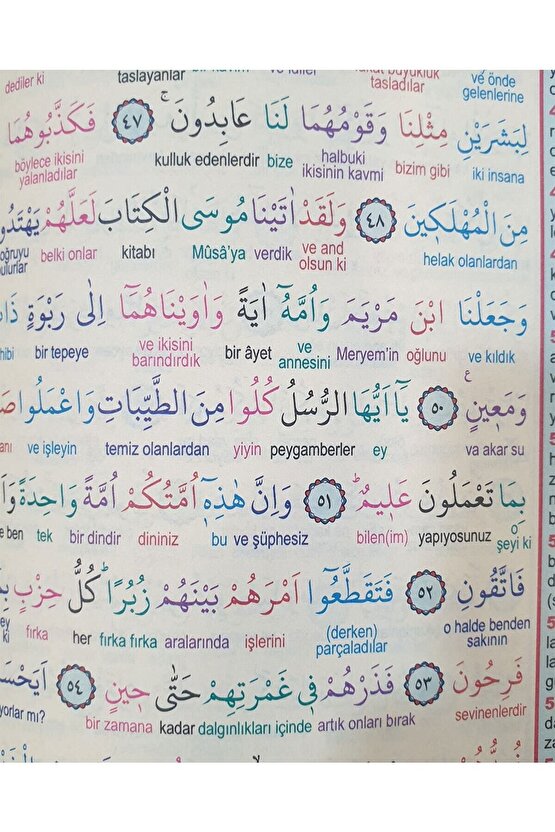 dediler ki taslayanlar tasladılar ve önde gelenlerine
لِبَشَرَيْنِ مِثْلِنَا وَقَوْمُهُمَا لَنَا عَابِدُونَۚ ﴿٤٧﴾ فَكَذَّبُوهُمَا
iki insana bizim gibi halbuki ikisinin kavmi bize kulluk edenlerdir böylece ikisini yalanladılar
مِنَ الْمُهْلَكٖينَ ﴿٤٨﴾ وَلَقَدْ اٰتَيْنَا مُوسَى الْكِتَابَ لَعَلَّهُمْ
helak olanlardan ve and olsun ki verdik Mûsâ'ya kitabı belki onlar
وَجَعَلْنَا ابْنَ مَرْيَمَ وَاُمَّهُٓ اٰيَةً وَاٰوَيْنَاهُمَٓا اِلٰى رَبْوَةٍ
ve kıldık oğlunu Meryem'in ve annesini bir âyet ve ikisini barındırdık bir tepeye
وَمَعٖينٍࣖ ﴿٥٠﴾ يَٓا اَيُّهَا الرُّسُلُ كُلُوا مِنَ الطَّيِّبَاتِ وَاعْمَلُوا
va akar su ey peygamberler yiyin temiz olanlardan ve işleyin
بِمَا تَعْمَلُونَ عَلٖيمٌؕ ﴿٥١﴾ وَاِنَّ هٰذِهٖٓ اُمَّتُكُمْ اُمَّةً وَاحِدَةً
o şeyi ki yapıyosunuz bilen(im) ve şüphesiz bu dininiz bir dindir tek ben
فَاتَّقُونِ ﴿٥٢﴾ فَتَقَطَّعُٓوا اَمْرَهُمْ بَيْنَهُمْ زُبُرًاؕ كُلُّ حِزْبٍ
o halde benden sakının (derken) parçaladılar işlerini aralarında fırka fırka her fırka
فَرِحُونَ ﴿٥٣﴾ فَذَرْهُمْ فٖي غَمْرَتِهِمْ حَتّٰى حٖينٍ ﴿٥٤﴾
sevinenlerdir artık onları bırak dalgınlıkları içinde kadar bir zamana